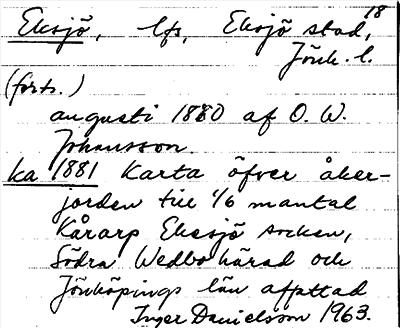 18
Eksjö, lfs, Eksjö stad,
Jönk. l.
(forts.)
augusti 1880 af O. W.
Johansson.
ka 1881 Karta öfver åker-
jorden till 1/6 mantal
Kårarp Eksjö socken,
Södra Wedbo härad och
Jönköpings län affattad
Inger Danielsson 1963.